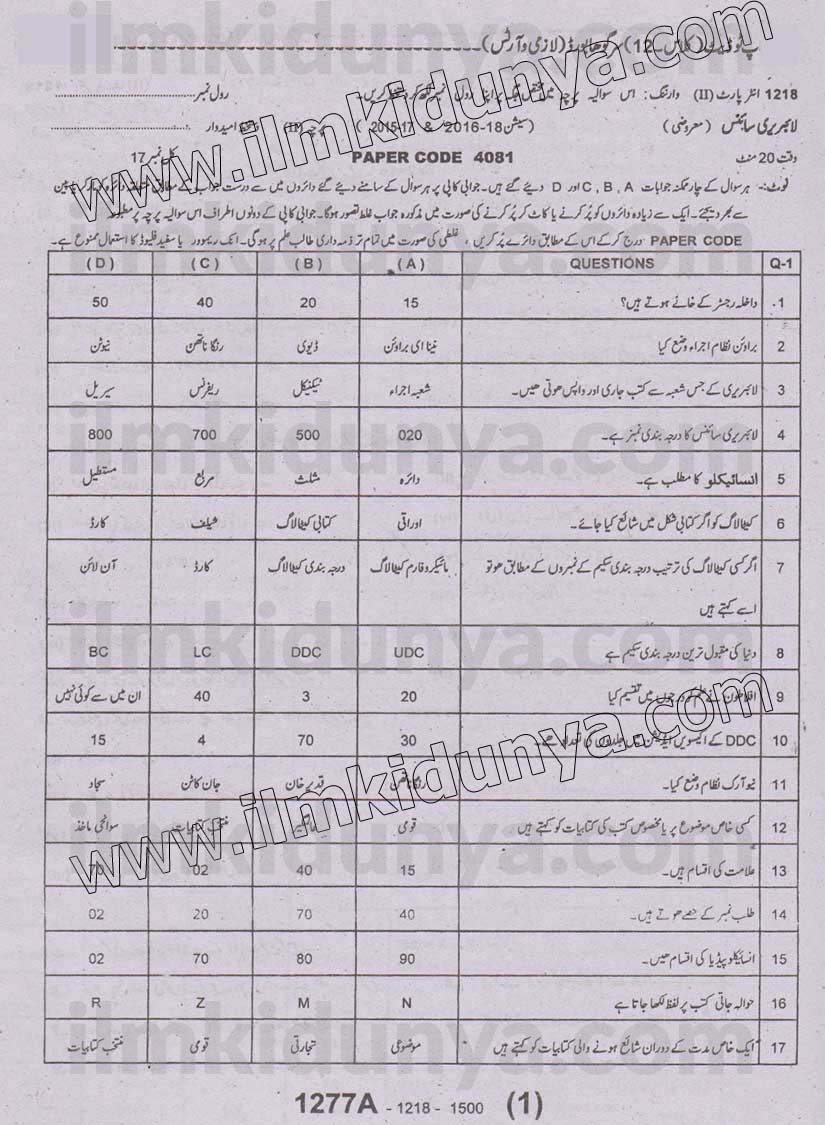 پ ٹو ڈیٹ (کلاس ۔12) گوجرانوالہ بورڈ (لازمی و آرٹس)
1218 انٹر پارٹ (II) وارننگ: اس سوالیہ پرچہ پر اپنا رول نمبر کریں۔ رول نمبر
لائبریری سائنس (معروضی) (سیشن 18-2016 & 17-2015) پرچہ (II) امیدوار
وقت 20 منٹ PAPER CODE 4081 کل نمبر 17
نوٹ:۔ ہر سوال کے چار ممکنہ جوابات C , B , A اور D دیئے گئے ہیں۔ جوابی کاپی پر ہر سوال کے سامنے دیئے گئے دائروں میں سے درست جواب کے مطابق متعلقہ دائرہ کو مارکر یا پین
سے بھر دیجئے۔ ایک سے زیادہ دائروں کو پُر کرنے یا کاٹ کر پُر کرنے کی صورت میں مذکورہ جواب غلط تصور ہوگا۔ جوابی کاپی کے دونوں اطراف اس سوالیہ پرچہ پر مطبوعہ
PAPER CODE درج کر کے اس کے مطابق دائرے پُر کریں، غلطی کی صورت میں تمام تر ذمہ داری طالب علم پر ہوگی۔ انک ریموور یا سفید فلیوڈ کا استعمال ممنوع ہے۔
Q-1 QUESTIONS (A) (B) (C) (D)
1. داخلہ رجسٹر کے خانے ہوتے ہیں؟ 15 20 40 50
2 براؤن نظام اجراء وضع کیا نینا ای براؤن ڈیوی رنگا ناتھن نیوٹن
3 لائبریری کے جس شعبہ سے کتب جاری اور واپس ہوتی ہیں۔ شعبہ اجراء ٹیکنیکل ریفرنس سیریل
4 لائبریری سائنس کا درجہ بندی نمبر ہے۔ 020 500 700 800
5 انسائیکلو کا مطلب ہے۔ دائرہ مثلث مربع مستطیل
6 کیٹالاگ کو اگر کتابی شکل میں شائع کیا جائے۔ اوراقی کتابی کیٹالاگ شیلف کارڈ
7 اگر کسی کیٹالاگ کی ترتیب درجہ بندی سکیم کے نمبروں کے مطابق ہو تو مائیکروفارم کیٹالاگ درجہ بندی کیٹالاگ کارڈ آن لائن
اسے کہتے ہیں
8 دنیا کی مقبول ترین درجہ بندی سکیم ہے UDC DDC LC BC
9 افلاطون نے علم کو درجوں میں تقسیم کیا 20 3 40 ان میں سے کوئی نہیں
10 DDC کے اکیسویں ایڈیشن میں جلدوں کی تعداد ہے۔ 30 70 4 15
11 نیو آرک نظام وضع کیا۔ رنگا ناتھن قدیر خان جان کاٹن سجاد
12 کسی خاص موضوع پر یا مخصوص کتب کی کتابیات کو کہتے ہیں قومی عالمگیر منتخب کتابیات سوانحی ماخذ
13 علامت کی اقسام ہیں۔ 15 40 02 70
14 طلب نمبر کے حصے ہوتے ہیں۔ 40 70 20 02
15 انسائیکلوپیڈیا کی اقسام ہیں۔ 90 80 70 02
16 حوالہ جاتی کتب پر لفظ لکھا جاتا ہے N M Z R
17 ایک خاص مدت کے دوران شائع ہونے والی کتابیات کو کہتے ہیں موضوعی تجارتی قومی منتخب کتابیات
1277A - 1218 - 1500 (1)
www.ilmkidunya.com
www.ilmkidunya.com
ilmkidunya.com
ilmkidunya.com
ilmkidunya.com
ilmkidunya.com
ilmkidunya.com